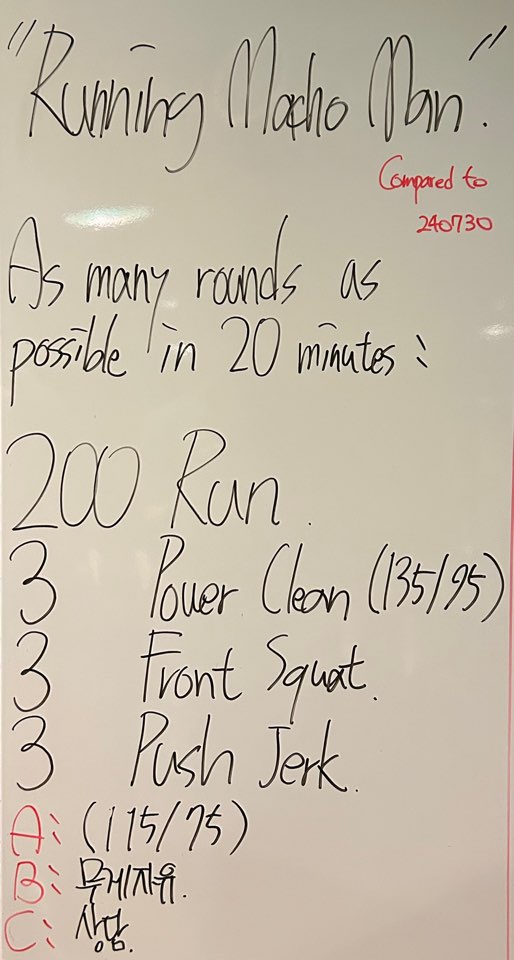 "Running Macho Man".
Compared to
240730
As many rounds as
possible in 20 minutes:
200 Run.
3 Power Clean (135/95)
3 Front Squat.
3 Push Jerk.
A: (115/75)
B: 무게자유.
C: 상담.